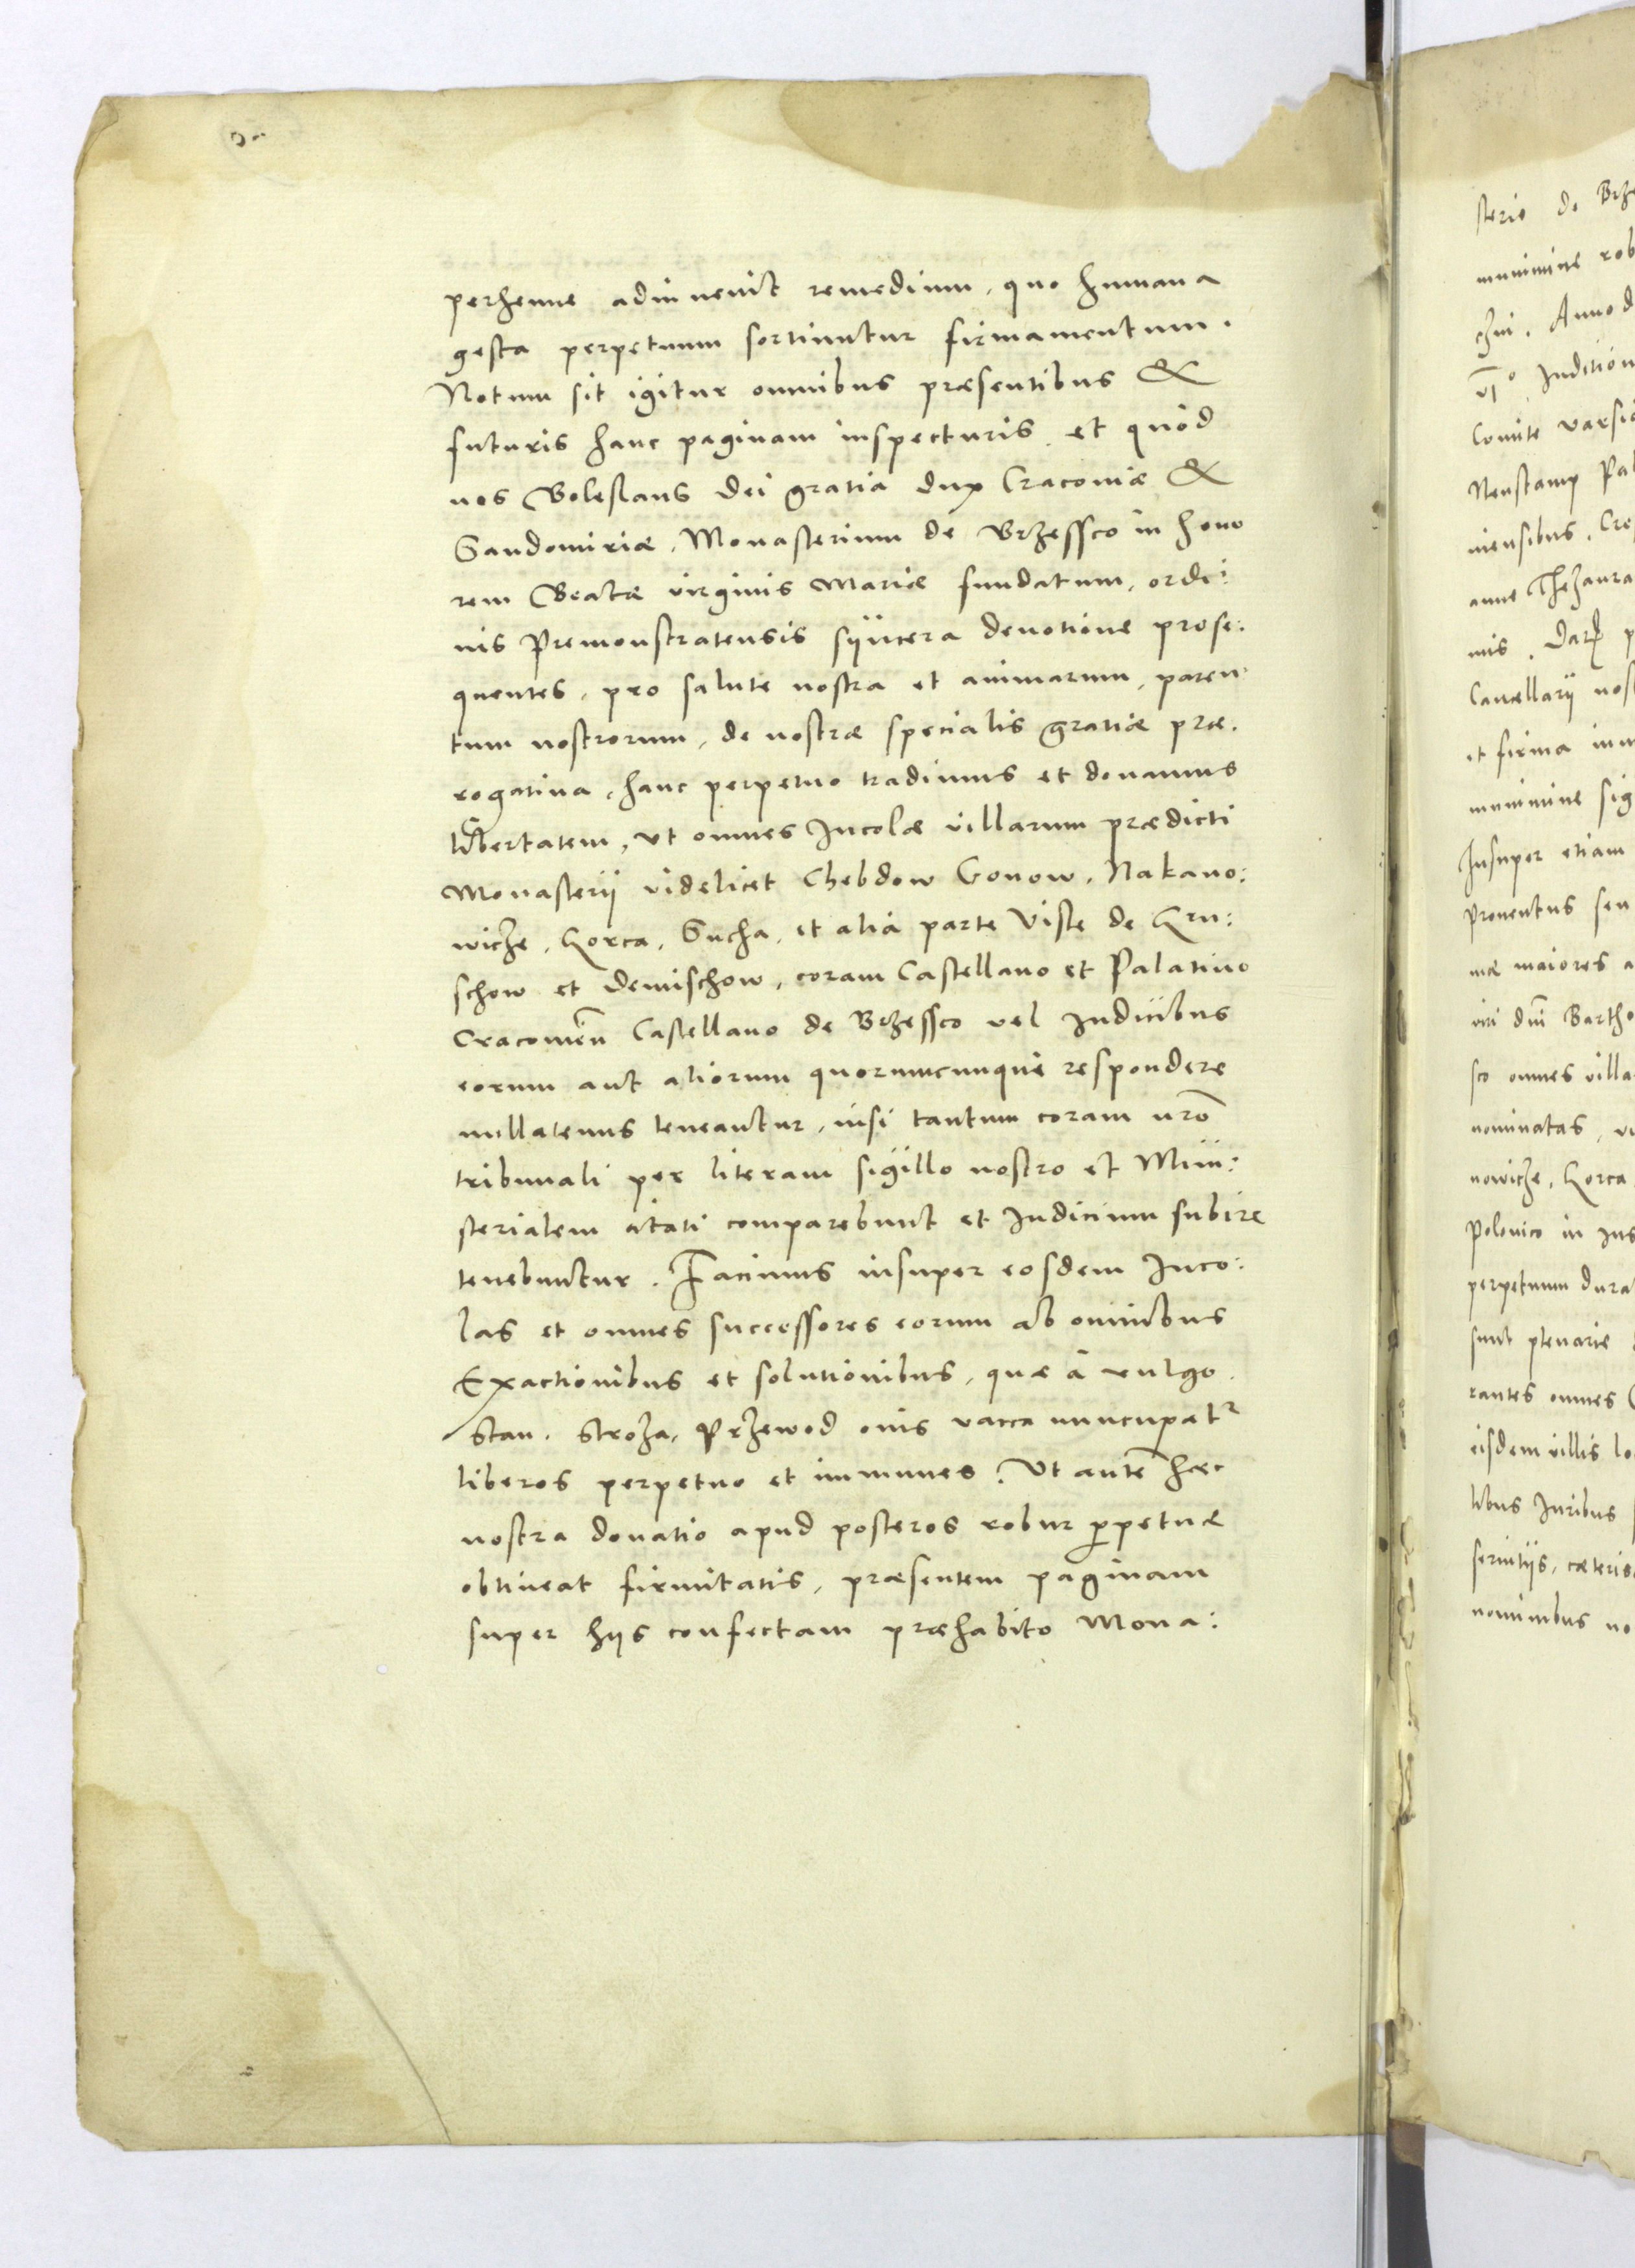 perhenne adinvenit remedium, quo humana
gesta perpetuum sortiuntur firmamentum.
Notum sit igitur omnibus præsentibus &
futuris hanc paginam inspecturis, et quòd
nos Boleslaus Dei gratia dux Cracoviæ &
Sandomiriæ, Monasterium de Brzessco in hono
rem Beatæ virginis Mariæ fundatum, ordi:
nis Premonstratensis syncera devotione prose:
quentes, pro salute nostra et animarum, paren
tum nostrorum, de nostræ specialis gratiæ præ.
rogativa, hanc perpetuo tradimus et donamus
libertatem, ut omnes Incolæ villarum prædicti
Monasterii videlicet Chebdow Gonow, Nakano:
wicze, Gorca, Sucha, et alia parte Viste de Gru:
schow et Demischow, coram Castellano et Palatino
Cracovień Castellano de Brzessco vel Iudicibus
eorum aut aliorum quorumcunque respondere
nullatenus teneantur, nisi tantum coram nrõ
tribunali per literam sigillo nostro et Mini:
sterialem citati comparebunt et Iudicium subire
tenebuntur. Facimus insuper eosdem Inco:
las et omnes successores eorum ab omnibus
Exactionibus et solutionibus, quæ à vulgo.
Stan. Stroza, Przewod ovis vacca nuncupatr
liberos perpetuo et immunes. Ut autẽ hæc
nostra donatio apud posteros robur ꝑpetuæ
obtineat firmitatis, præsentem paginam
super hijs confectam præhabito Mona:
sterio de Brze
munimine rob
chvi. Anno d
Inditión
Comite varsi
Pal
niensibus, Cre
anne Thezaura
nis.
Cancellarij nos
et firma
munimine sig
Insuper etiam
proventus seu
næ maiores a
viri dñi Bartho
sco omnes villa
nominatas,
nowicze, Gorca
Polonico in Ius
perpetuum dura
sunt plenarie
rantes omnes
eisdem villis lo
libus Iuribus
servitijs, cæteris
nominibus no